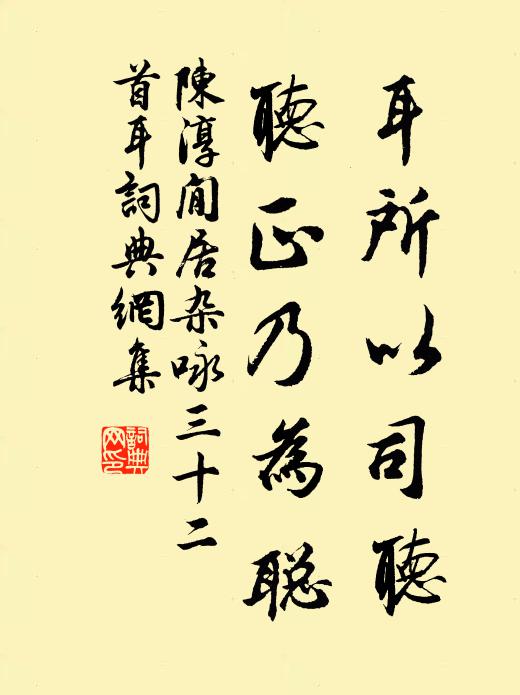 耳所以司聽
聽正乃為聡
陳淳閒居杂咏三十二
首耳詞典網集
詞典
网印